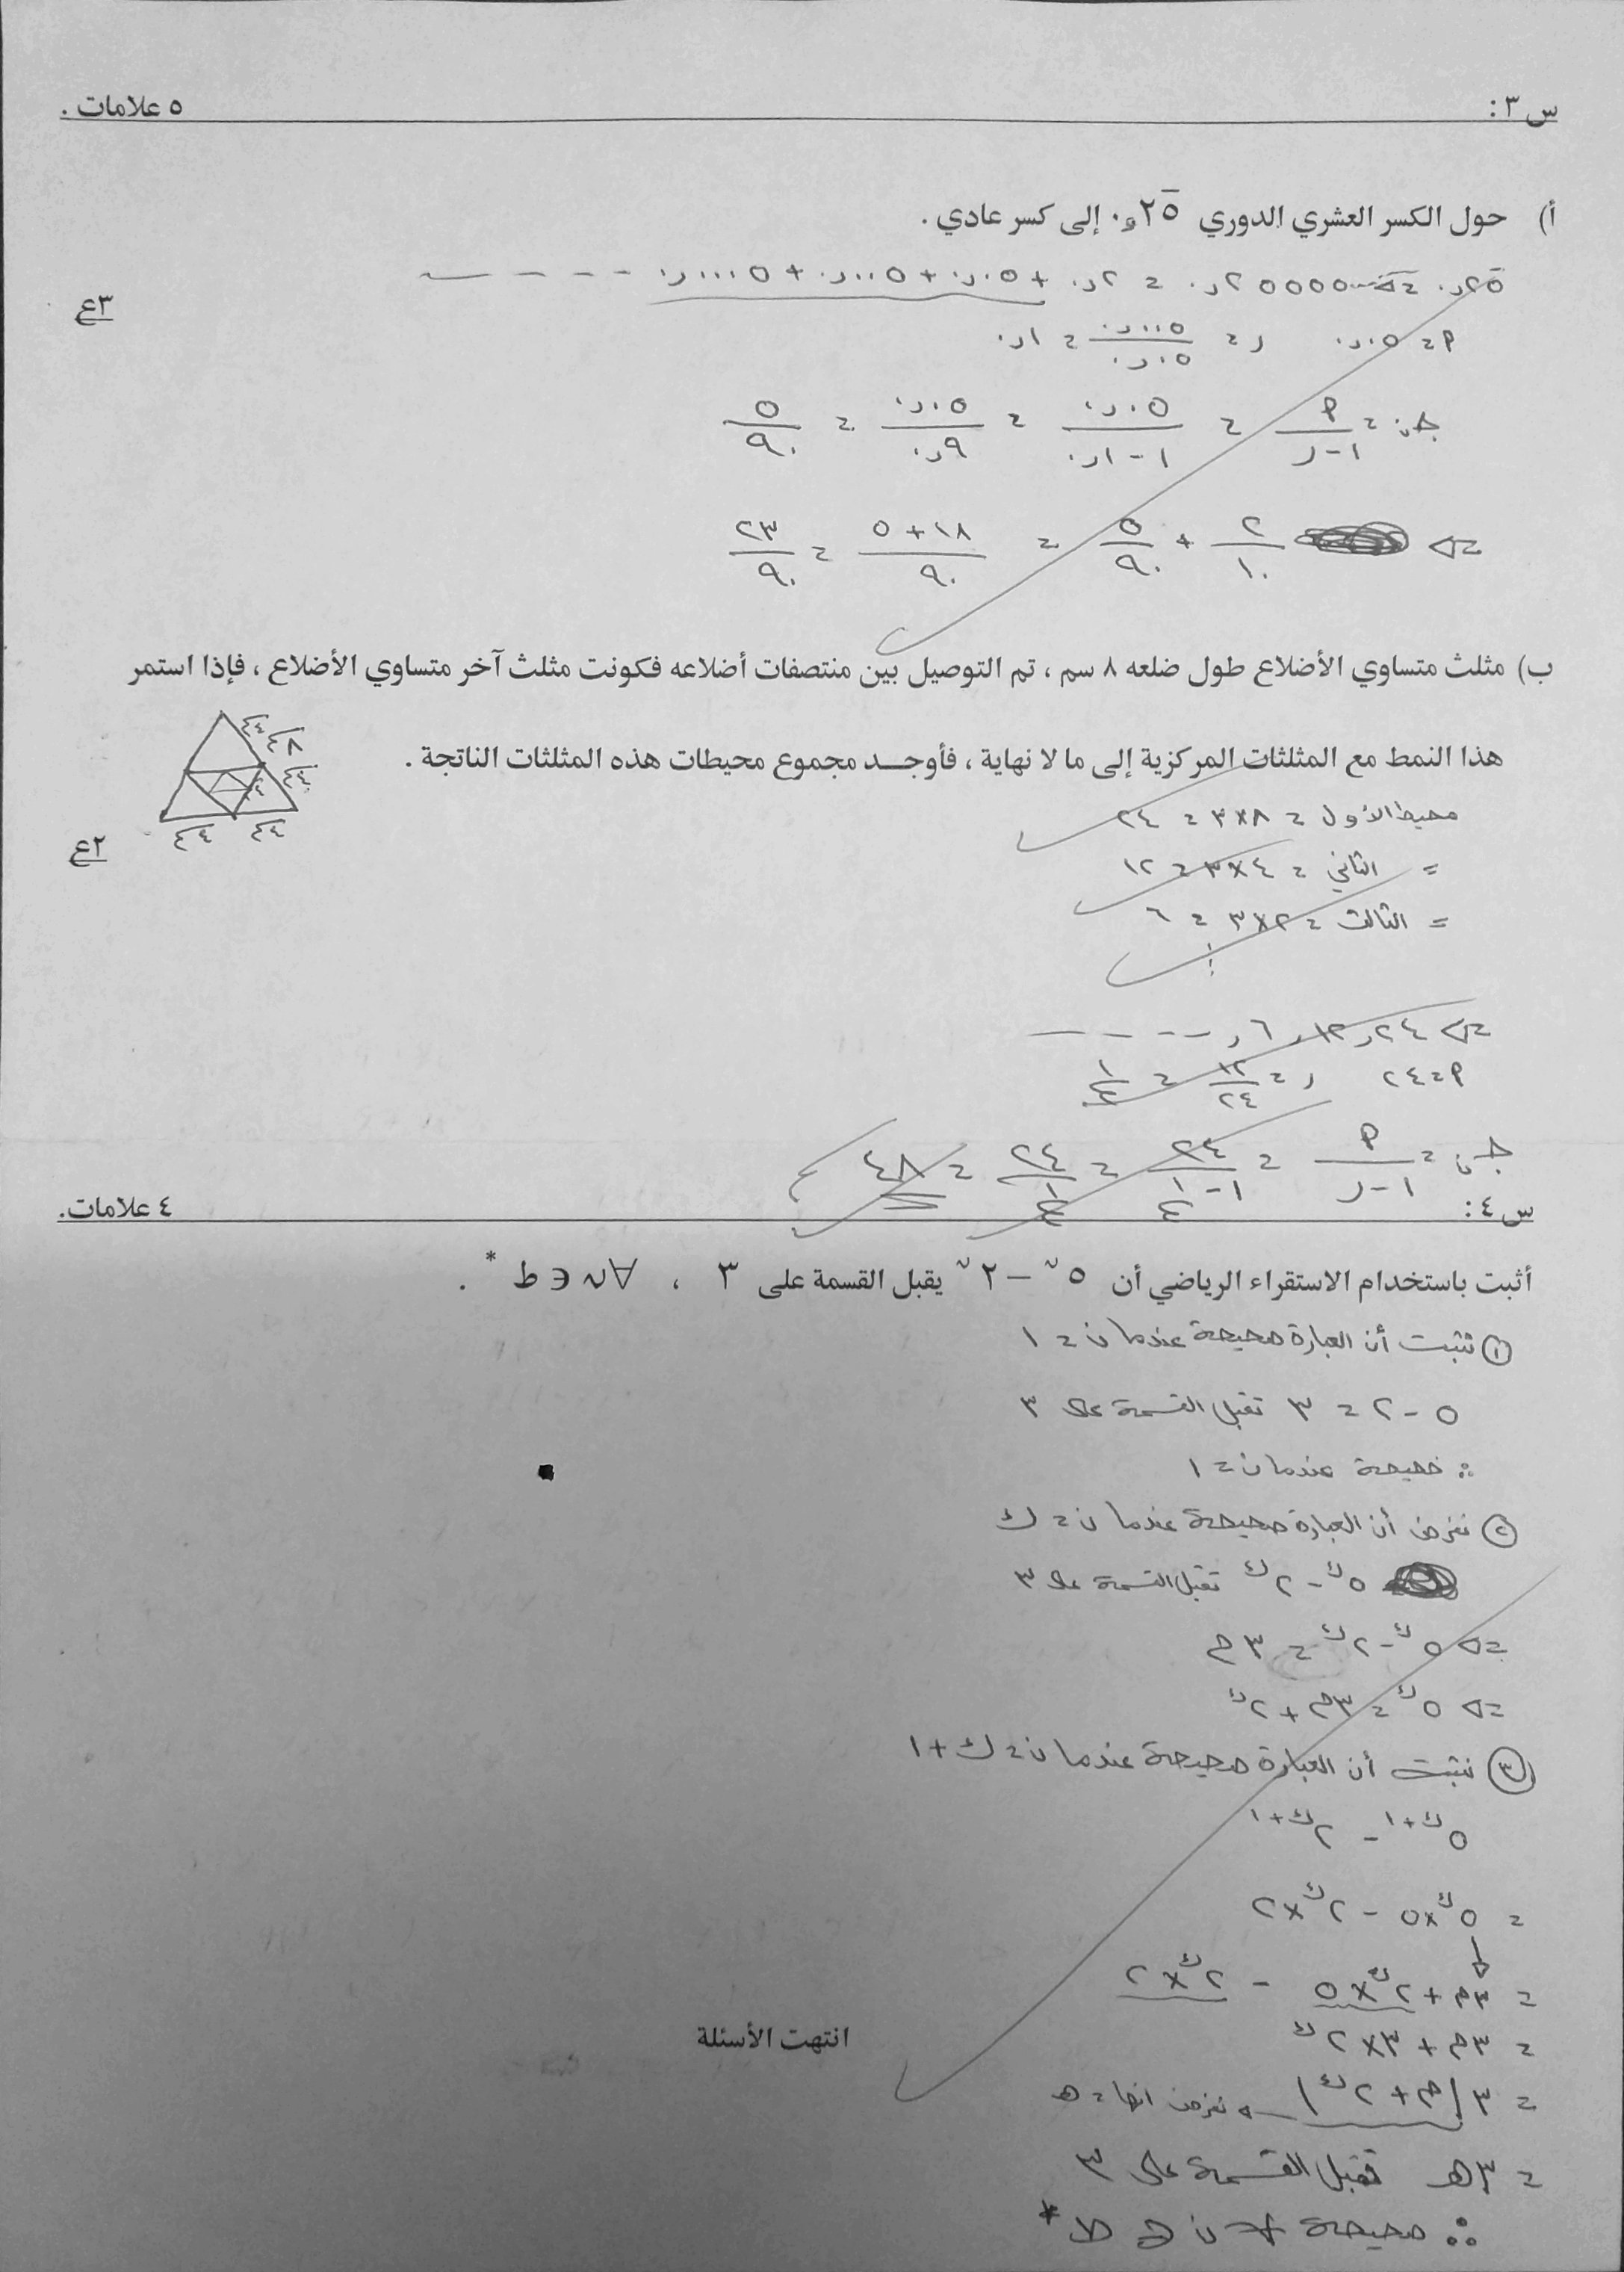 س ٣ : ٥ علامات .
أ) حول الكسر العشري الدوري ٠٫٢٥̅ إلى كسر عادي .
٠٫٢٥̅ = ٠٫٢٥٥٥٥... = ٠٫٢ + ٠٫٠٥ + ٠٫٠٠٥ + ٠٫٠٠٠٥ + ----
٣ع
أ = ٠٫٠٥ ر = ٠٫٠٠٥/٠٫٠٥ = ٠٫١
جـن = أ/(١-ر) = ٠٫٠٥/(١-٠٫١) = ٠٫٠٥/٠٫٩ = ٥/٩٠
⇐ ٢/١٠ + ٥/٩٠ = (١٨+٥)/٩٠ = ٢٣/٩٠
ب) مثلث متساوي الأضلاع طول ضلعه ٨ سم ، تم التوصيل بين منتصفات أضلاعه فكونت مثلث آخر متساوي الأضلاع ، فإذا استمر
هذا النمط مع المثلثات المركزية إلى ما لا نهاية ، فأوجـد مجموع محيطات هذه المثلثات الناتجة .
محيط الأول = ٨×٣ = ٢٤
٢ع
= الثاني = ٤×٣ = ١٢
= الثالث = ٢×٣ = ٦
⇐ ٢٤ , ١٢ , ٦ , ----
أ = ٢٤ ر = ١٢/٢٤ = ١/٢
جـن = أ/(١-ر) = ٢٤/(١-١/٢) = ٢٤/(١/٢) = ٤٨
س ٤ : ٤ علامات.
أثبت باستخدام الاستقراء الرياضي أن ٥^ن – ٢^ن يقبل القسمة على ٣ ، ∀ن ∈ ط* .
① نثبت أن العبارة صحيحة عندما ن = ١
٥ - ٢ = ٣ تقبل القسمة على ٣
∴ صحيحة عندما ن = ١
② نفرض أن العبارة صحيحة عندما ن = ك
٥^ك - ٢^ك تقبل القسمة على ٣
⇐ ٥^ك - ٢^ك = ٣م
⇐ ٥^ك = ٣م + ٢^ك
③ نثبت أن العبارة صحيحة عندما ن = ك + ١
٥^(ك+١) - ٢^(ك+١)
= ٥^ك × ٥ - ٢^ك × ٢
= ٣م + ٢^ك × ٥ - ٢^ك × ٢
= ٣م + ٣ × ٢^ك
انتهت الأسئلة
= ٣ (م + ٢^ك) ← نفرض انها = هـ
= ٣هـ تقبل القسمة على ٣
∴ صحيحة ∀ ن ∈ ط*